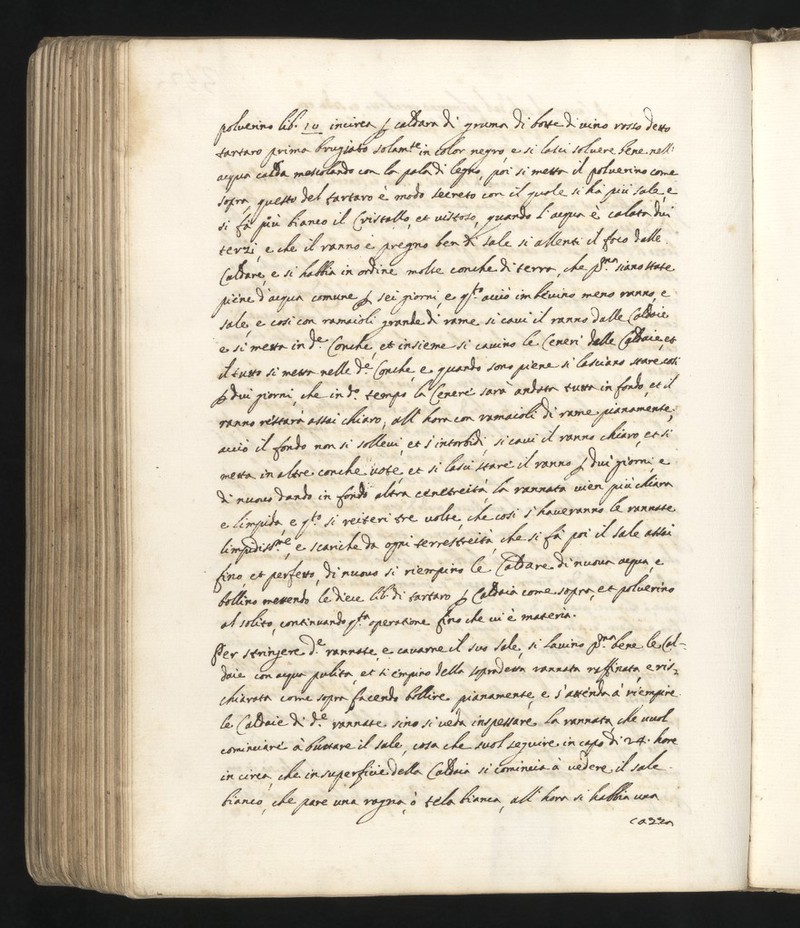 polverino lib. 10 incirca p caldara di gruma di botte di vino rosso detto
tartaro prima brugiato solamte in color negro e si lasci solvere bene nell'
acqua calda mescolando con la pala di legno, poi si metta il polverino come
sopra, questo del tartaro è modo secreto con il quale si ha più sale, e
si fà più bianco il Cristallo, et vistoso, quando l'acqua è calata dui
terzi, e che il ranno è pregno ben di sale si allenti il foco dalle
Caldare, e si habbia in ordine molte conche di terra, che pma siano state
piene d'acqua comune p sei giorni, e qto acciò imbevino meno ranno, e
sale, e cosi con ramaioli grande di rame si cavi il ranno dalle Caldaie
e si metta in de Conche, et insieme si cavino le Ceneri dalle Caldaie, et
il tutto si metta nelle de Conche, e quando sono piene si lasciano stare così
p dui giorni, che in do tempo la Cenere sarà andata tutta in fondo, et il
ranno restarà assai chiaro, all'hora con ramaioli di rame pianamente,
acciò il fondo non si sollevi, et s'intorbidi, si cavi il ranno chiaro, et si
metta in altre conche vote, et si lasci stare il ranno p dui giorni, e
di nuovo dando in fondo altra terrestreità la rannata vien più chiara
e limpida, e qto si reiteri tre volte, che cosi s'haveranno le rannate
limpidissme, e scariche da ogni terrestreità, che si fà poi il sale assai
fino, et perfetto, di nuovo si riempino le Caldare di nuova acqua, e
bollino mettendo le diece lib. di tartaro p Caldaia come sopra, et polverino
al solito, continuando qta operatione fino che vi è materia.
Per stringere de rannate, e cavarne il suo sale, si lavino pma bene le Cal=
daie con acqua pulita, et si empino della sopradetta rannata raffinata, e ris=
chiarata come sopra facendo bollire pianamente, e s'attenda à riempire
le Caldaie di de rannate sino si veda inspessare la rannata, che vuol
cominciare à buttare il sale, cosa che suol seguire in capo di 24. hore
in circa, che in superficie della Caldaia si comincia à vedere il sale
bianco, che pare una ragna, ò tela bianca, all'hora si habbia una
cazza